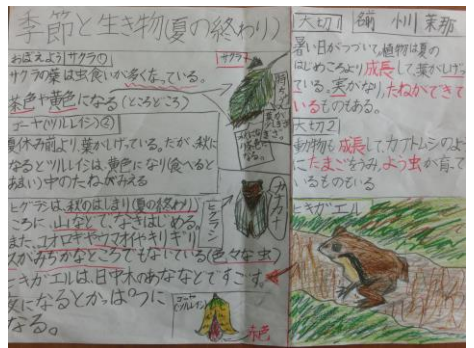 季節と生き物(夏の終わり)
おぼえよう サクラ①
サクラの葉は虫食いが多くなっている。
茶色や黄色になる(ところどころ)
サクラ
ゴーヤ(ツルレイシ)②
夏休み前より、葉がしげっている。だが、秋に
なるとツルレイシは、黄色になり(食べると
あまい)中のたねがみえる
ヒグラシは、秋のはじまり(夏の終わり)
ころに、山などで、なきはじめる。
また、コオロギやウマオイやキリギリ
スがみぢかなところでもないている(色々な虫)
ヒキガエルは、日中木のあななどですごす。
夜になるとかっぱつに
なる。
ヒグラシ
赤色
大切1 名前 小川
暑い日がつづいて、植物は夏の
はじめころより成長して、葉がしげっ
ている。実がなり、たねができて
いるものもある。
大切2
動物も成長して、カブトムシのよう
にたまごをうみ、よう虫が育って
いるものもいる
ヒキガエル